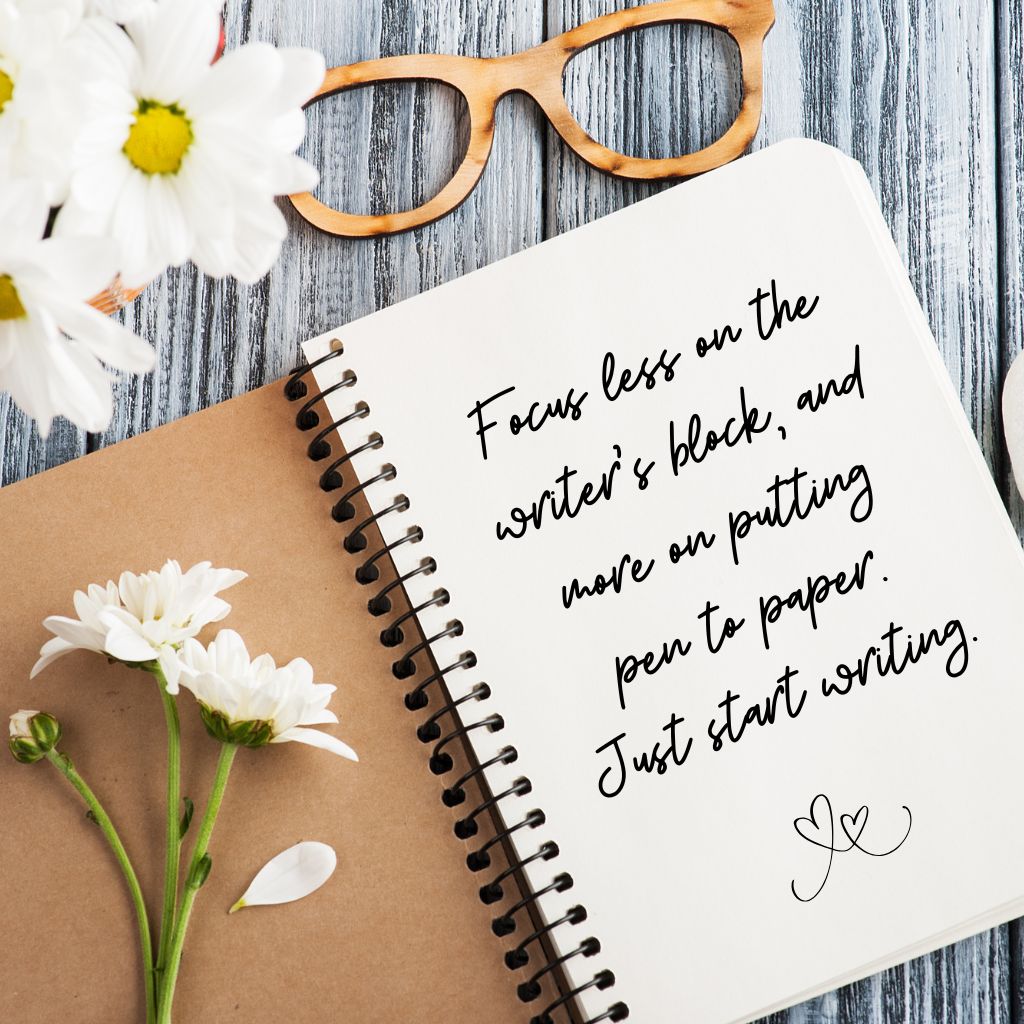 Focus less on the
writer's block, and
more on putting
pen to paper.
Just start writing.